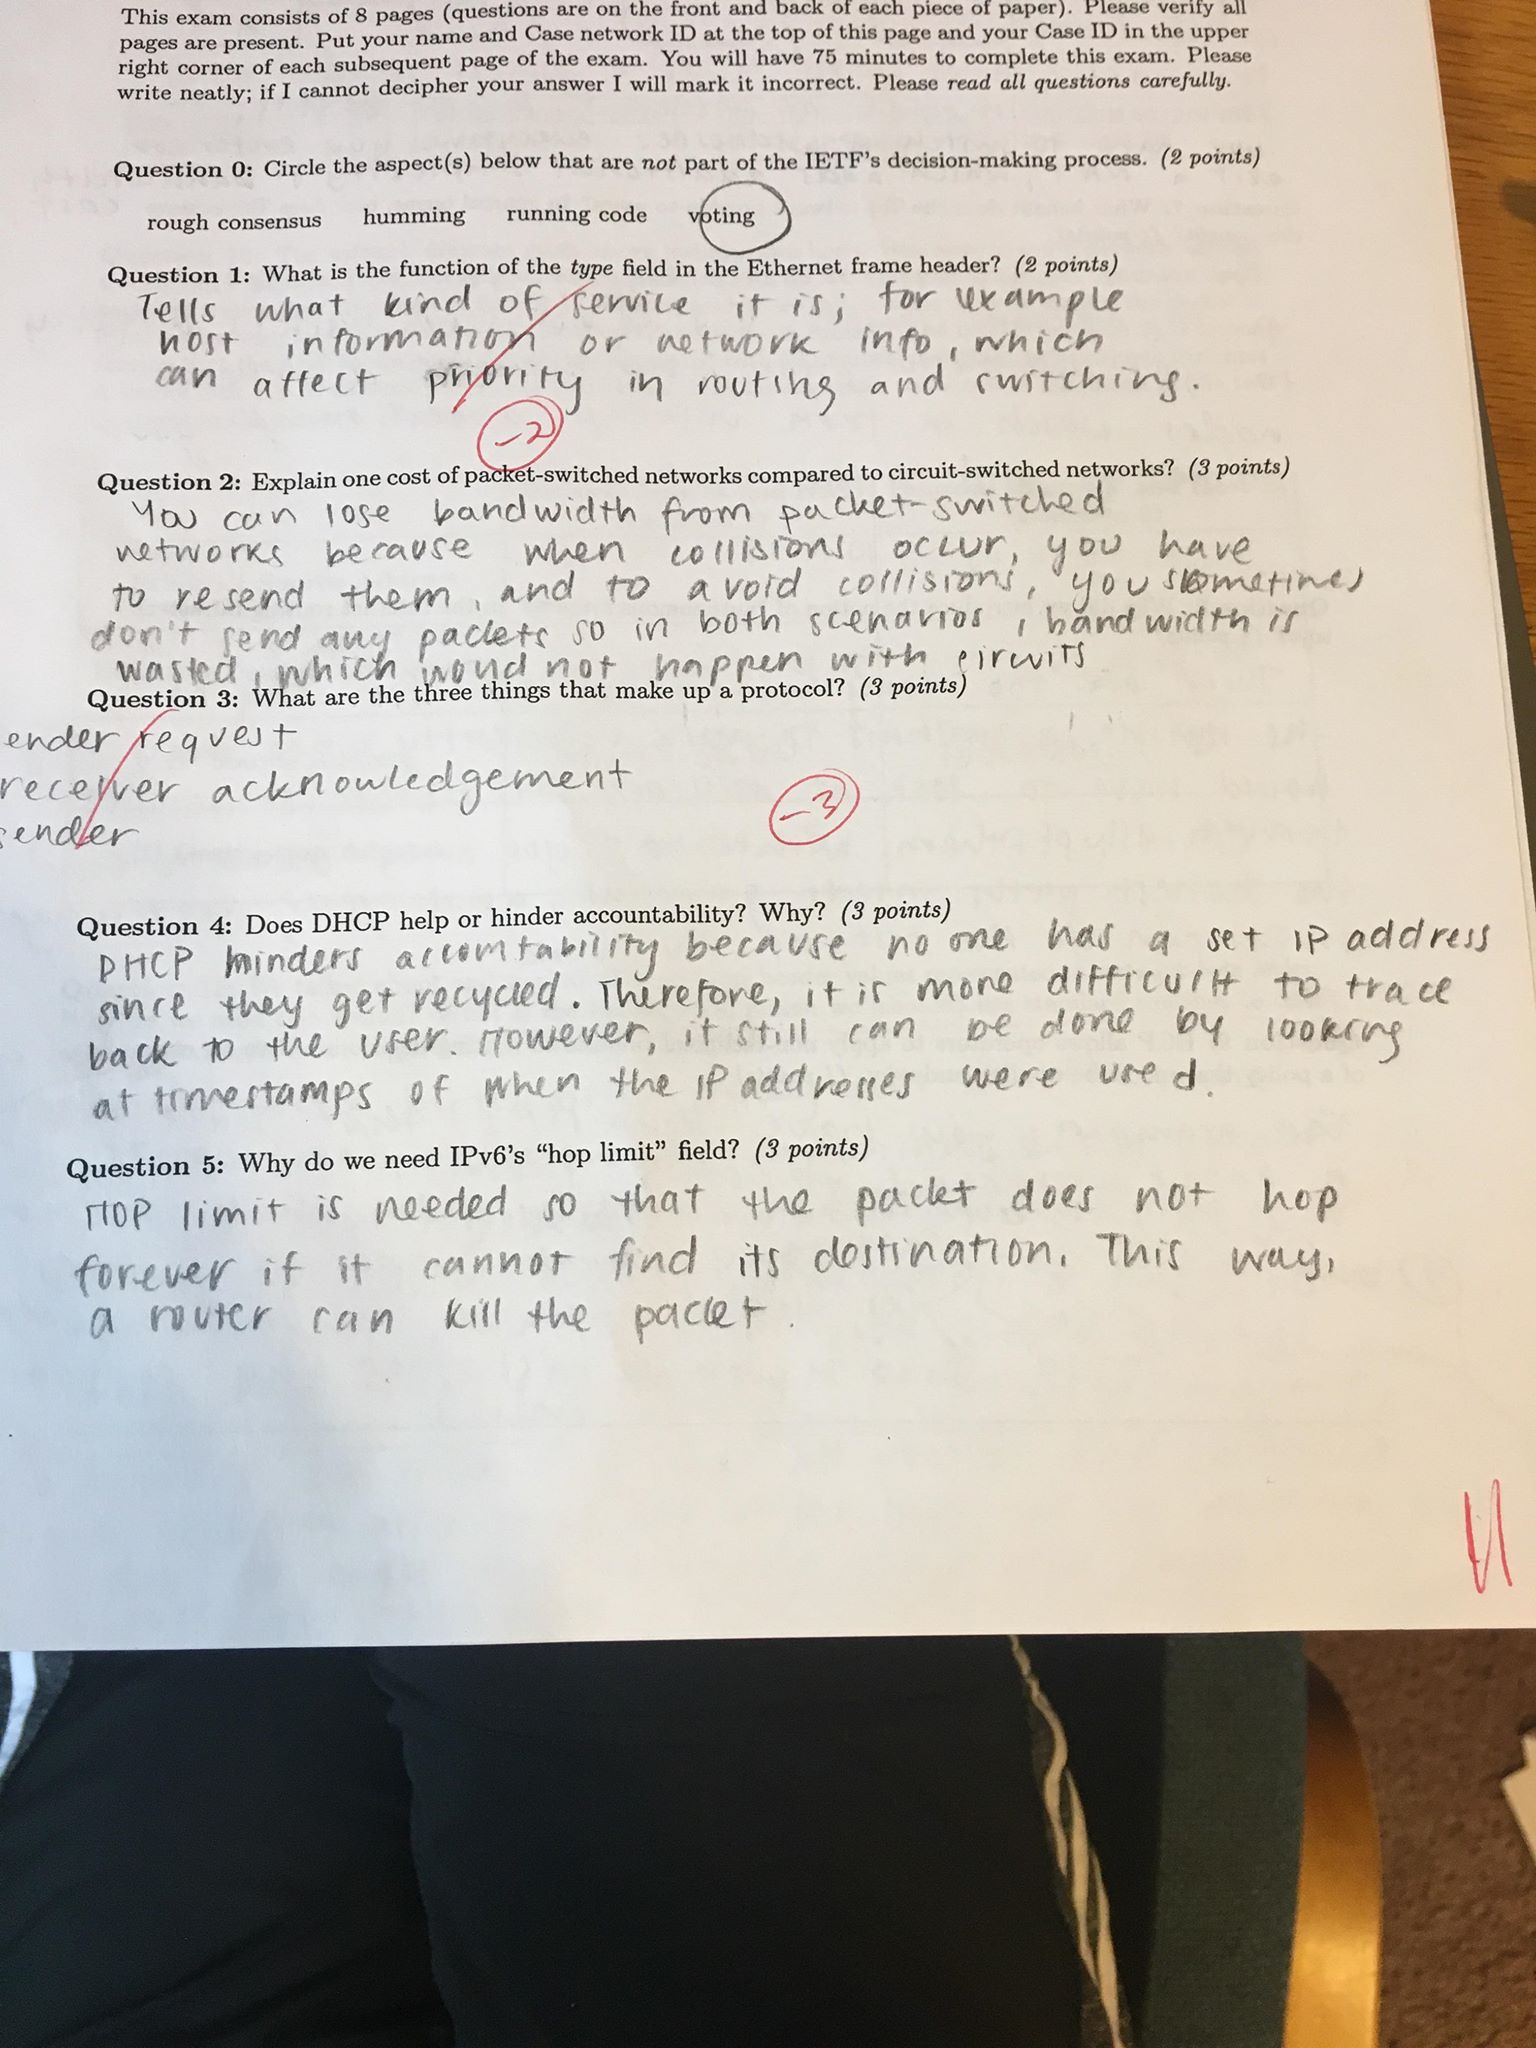 This exam consists of 8 pages (questions are on the front and back of each piece of paper). Please verify all
pages are present. Put your name and Case network ID at the top of this page and your Case ID in the upper
right corner of each subsequent page of the exam. You will have 75 minutes to complete this exam. Please
write neatly; if I cannot decipher your answer I will mark it incorrect. Please read all questions carefully.
Question 0: Circle the aspect(s) below that are not part of the IETF's decision-making process. (2 points)
rough consensus humming running code voting
Question 1: What is the function of the type field in the Ethernet frame header? (2 points)
Tells what kind of service it is; for example
host information or network info, which
can affect priority in routing and switching.
-2
Question 2: Explain one cost of packet-switched networks compared to circuit-switched networks? (3 points)
You can lose bandwidth from packet-switched
networks because when collisions occur, you have
to resend them, and to avoid collisions, you sometimes
don't send any packets so in both scenarios, bandwidth is
wasted, which would not happen with circuits
Question 3: What are the three things that make up a protocol? (3 points)
ender request
receiver acknowledgement
sender
-3
Question 4: Does DHCP help or hinder accountability? Why? (3 points)
DHCP hinders accountability because no one has a set IP address
since they get recycled. Therefore, it is more difficult to trace
back to the user. However, it still can be done by looking
at timestamps of when the IP addresses were used.
Question 5: Why do we need IPv6's "hop limit" field? (3 points)
Hop limit is needed so that the packet does not hop
forever if it cannot find its destination. This way,
a router can kill the packet.
11